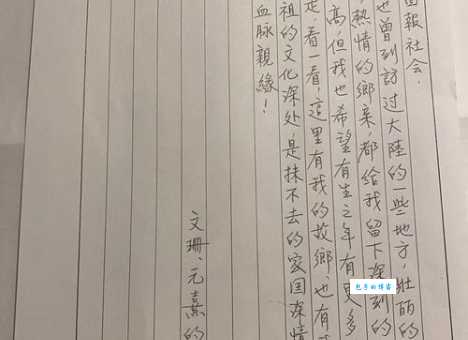 回報社會.
也曾到訪過大陸的一些地方,壯麗的
熱情的鄉亲,都給我留下深刻的
高,但我也希望有生之年有更多
走,看一看,這里有我的故鄉、也有
祖的文化深处,是抹不去的家国深情
血脉親緣!
文珊、元熹的
包子的博客